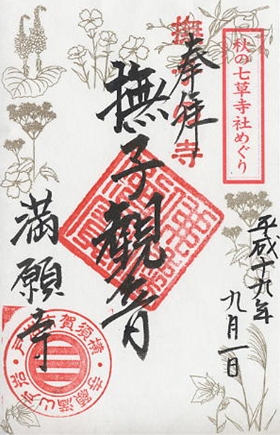 秋の七草寺社めぐり
奉拝
撫子の寺
撫子観音
満願寺
平成十九年
九月一日